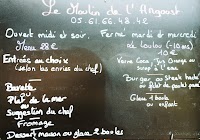 Le Moulin de L'Angoust
05.61.66.48.42
Ouvert midi et soir. Fermé mardi et mercredi
Menu 28 €
le loulou (-10 ans)
10 €
Entrées au choix
(selon les envies du chef)
Verre Coca,
ou Sirop à l'eau
Bavette
ou
Plat de la mer
ou
Suggestion du chef
Burger ou Steak haché
ou filet de poulet pané
Glace 1 boule
ou enfant
Fromage
Dessert maison ou glace 2 boules